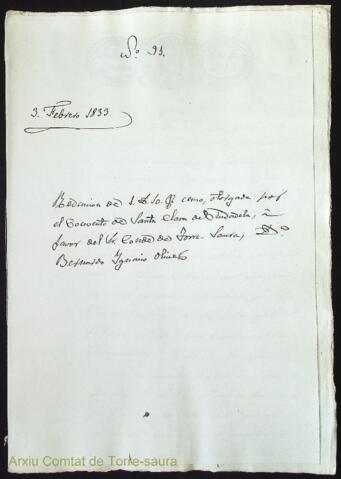 Nº 91.
3. Febrero 1833.
Redencion de 1. L. 10. censo, otorgada por
el Convento de Santa Clara de Ciudadela, a
favor del Sr. Conde de Torre-Saura, Dn.
Bernardo Ygnacio Olives
Arxiu Comtat de Torre-saura